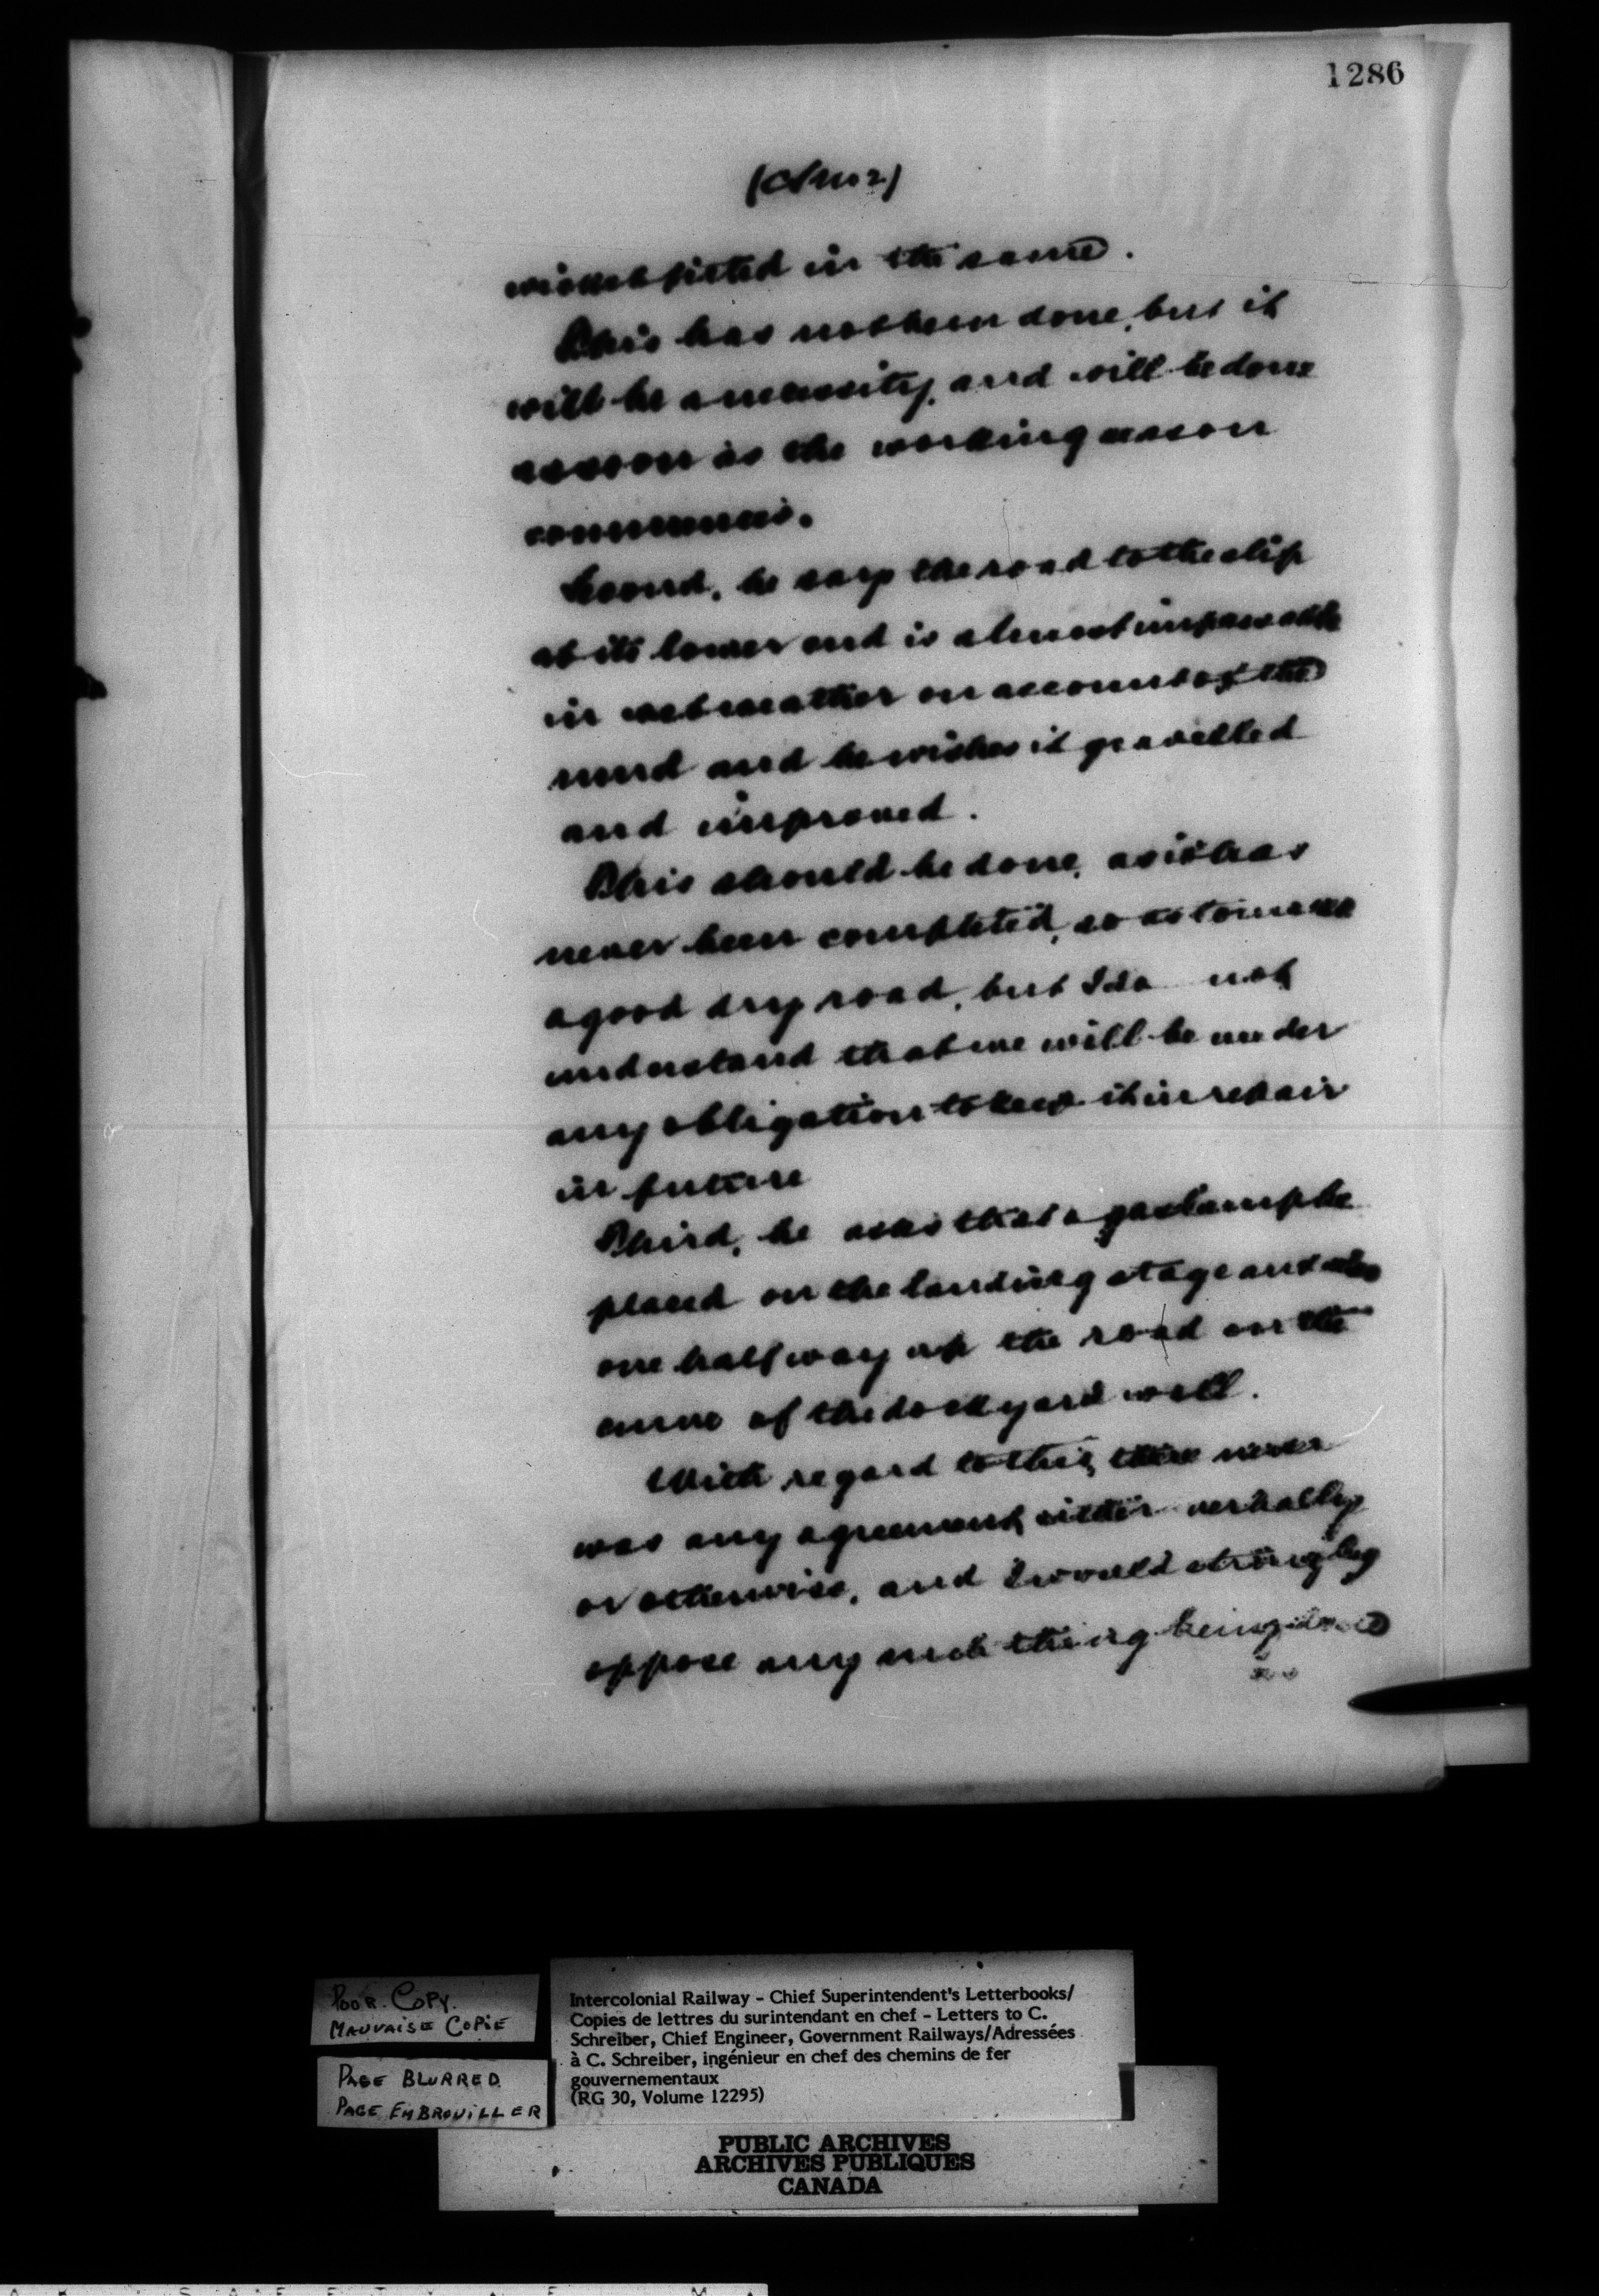 1286
(No 2)
wicket fitted in the same.
This has not been done, but it
will be a necessity, and will be done
as soon as the working season
commences.
Second, he says the road to the slip
at its lower end is almost impassable
in wet weather on account of the
mud and he wishes it gravelled
and improved.
This should be done, as it has
never been completed, so as to make
a good dry road, but I do not
understand that we will be under
any obligation to keep it in repair
in future
Third, he asks that a gas lamp be
placed on the landing stage and also
one half way up the road on the
curve of the dockyard wall.
With regard to this, there never
was any agreement, either verbally
or otherwise, and I would strongly
oppose any such thing being done
POOR COPY.
MAUVAISE COPIE
PAGE BLURRED
PAGE EMBROUILLER
Intercolonial Railway - Chief Superintendent's Letterbooks/
Copies de lettres du surintendant en chef - Letters to C.
Schreiber, Chief Engineer, Government Railways/Adressées
à C. Schreiber, ingénieur en chef des chemins de fer
gouvernementaux
(RG 30, Volume 12295)
PUBLIC ARCHIVES
ARCHIVES PUBLIQUES
CANADA